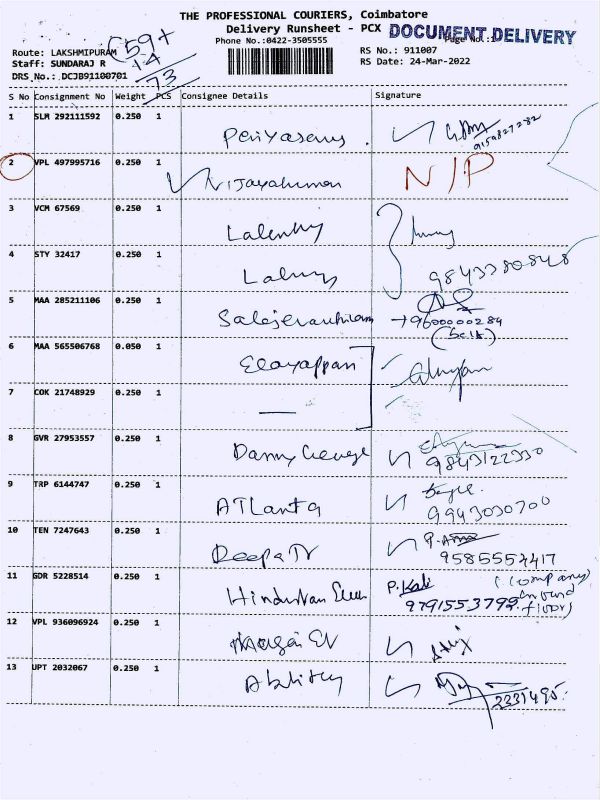 THE PROFESSIONAL COURIERS, Coimbatore
Delivery Runsheet - PCX DOCUMENT DELIVERY
Phone No.:0422-3505555 Page No.:1
Route: LAKSHMIPURAM RS No.: 911007
Staff: SUNDARAJ R RS Date: 24-Mar-2022
DRS No.: DCJB91100701
59+
14
73
S No Consignment No Weight PCS Consignee Details Signature
1 SLM 292111592 0.250 1
Periyasamy 9159827282
2 VPL 497995716 0.250 1
Vijayakumar N/P
3 VCM 67569 0.250 1
4 STY 32417 0.250 1
9843380848
5 MAA 285211106 0.250 1
9600000284
(Self)
6 MAA 565506768 0.050 1
Elayappan
7 COK 21748929 0.250 1
—
8 GVR 27953557 0.250 1
Danny George 9843122330
9 TRP 6144747 0.250 1
ATLanta 9943030700
10 TEN 7247643 0.250 1
Deepa TV 9585557417
11 GDR 5228514 0.250 1
Hindustan P. Kali (Company
9791553792 floor)
12 VPL 936096924 0.250 1
13 UPT 2032067 0.250 1
2231495